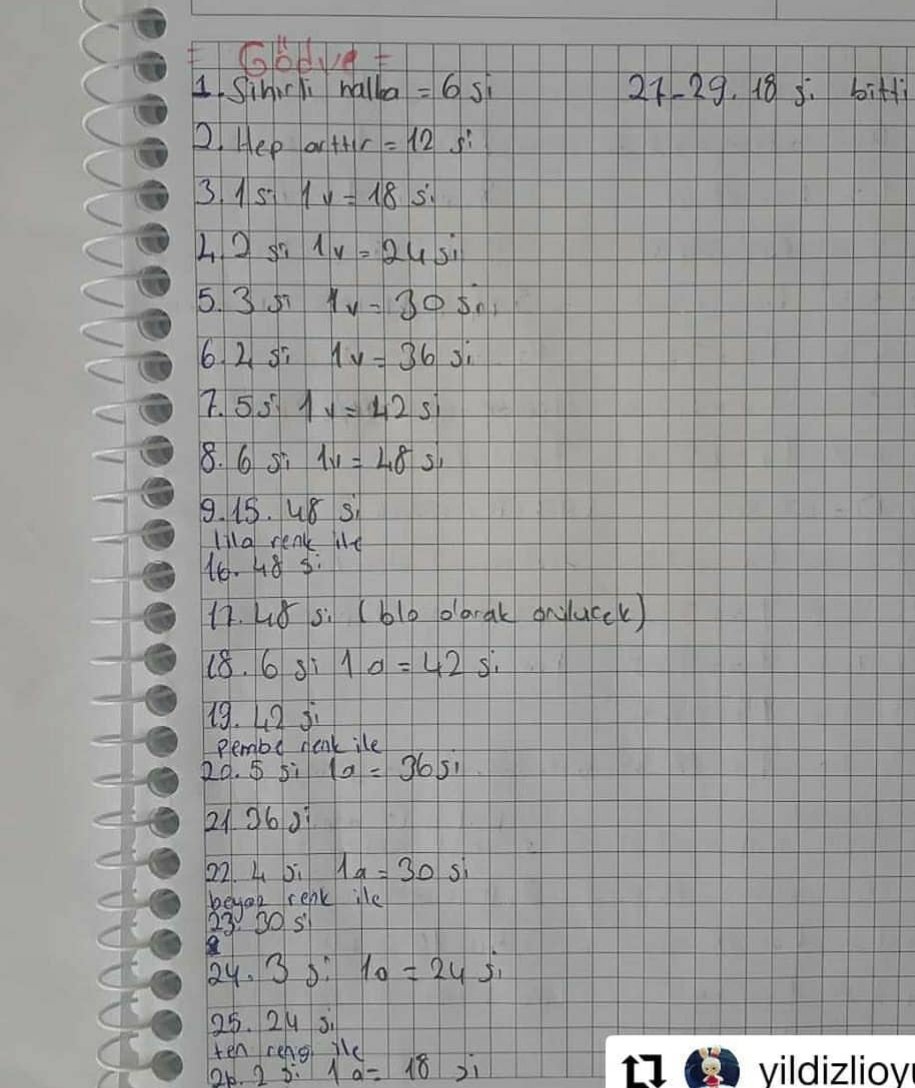 = Gödve =
1. Sihirli halka = 6 si
2. Hep arttır = 12 si
3. 1 si 1 v = 18 si
4. 2 si 1v = 24 si
5. 3 si 1v = 30 si
6. 4 si 1v = 36 si
7. 5 si 1 v = 42 si
8. 6 si 1v = 48 si
9.15. 48 si
lila renk ile
16. 48 si
17. 48 si (blo olarak örülücek)
18. 6 si 1 a = 42 si
19. 42 si
pembe renk ile
20. 5 si 1a = 36 si
21. 36 si
22. 4 si 1a = 30 si
beyaz renk ile
23. 30 si
24. 3 si 1a = 24 si
25. 24 si
ten rengi ile
26. 2 si 1 a = 18 si
27-29. 18 si bitti
yildizlioy